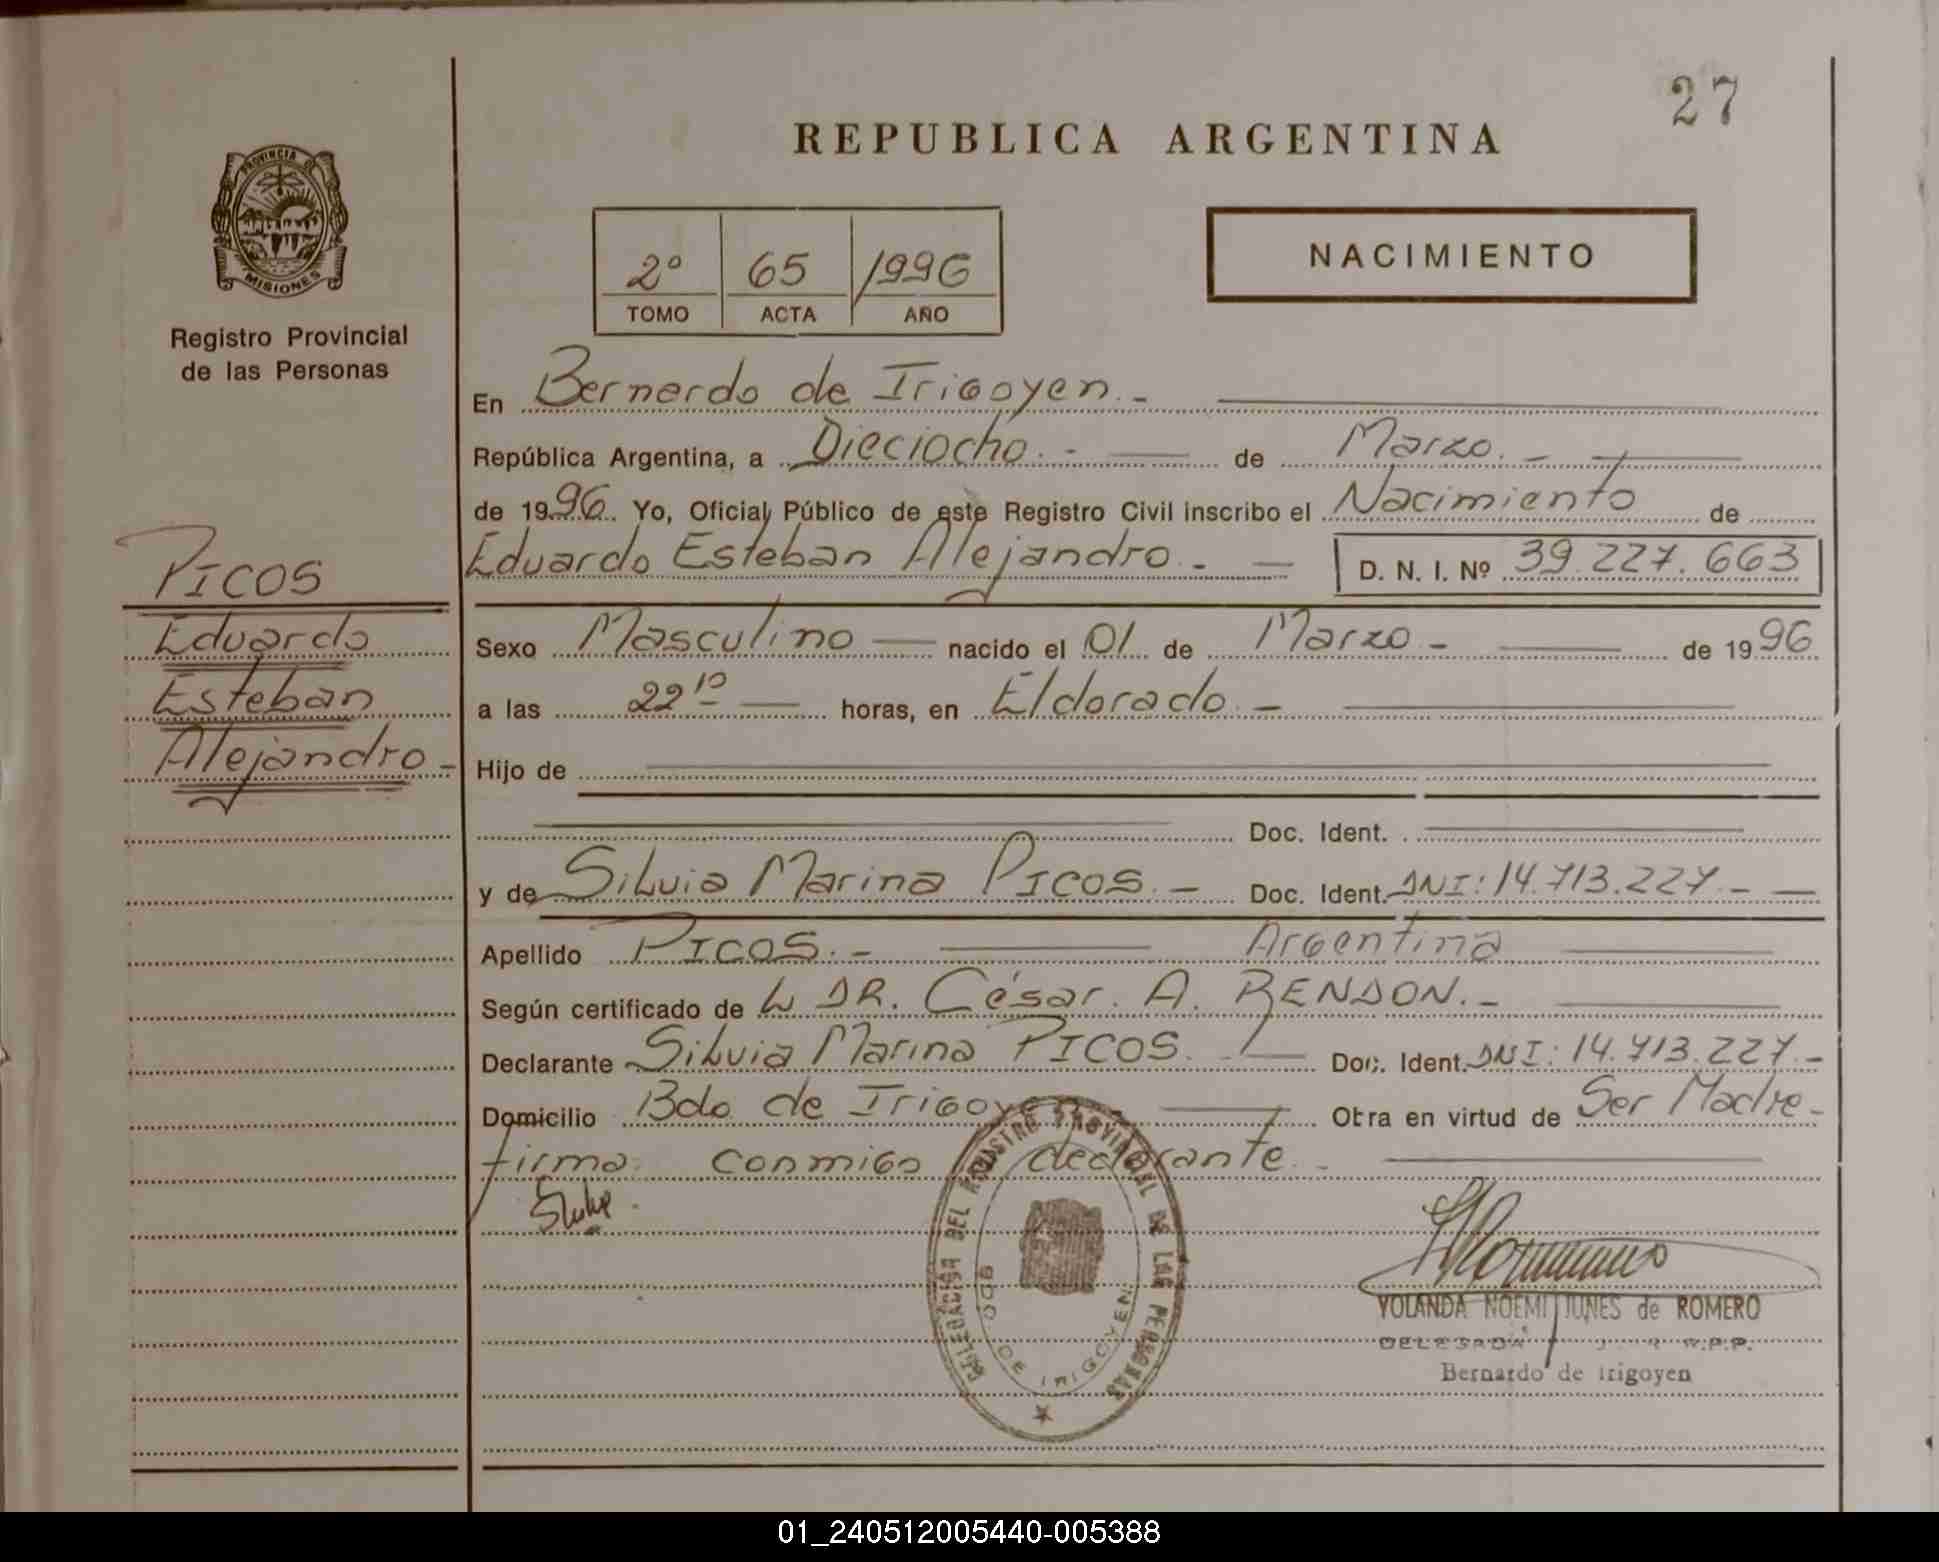 27
REPUBLICA ARGENTINA
PROVINCIA DE
MISIONES
Registro Provincial
de las Personas
2º 65 1996
TOMO ACTA AÑO
NACIMIENTO
En Bernardo de Irigoyen.-
República Argentina, a Dieciocho.- de Marzo.-
de 1996. Yo, Oficial Público de este Registro Civil inscribo el Nacimiento de
Eduardo Esteban Alejandro.- D. N. I. Nº 39.227.663
PICOS
Eduardo
Esteban
Alejandro-
Sexo Masculino nacido el 01 de Marzo - de 1996
a las 22 10 horas, en Eldorado.-
Hijo de
Doc. Ident.
y de Silvia Marina PICOS.- Doc. Ident. DNI: 14.713.227.-
Apellido PICOS.- Argentina
Según certificado de DR. César. A. RENDON.-
Declarante Silvia Marina PICOS. Doc. Ident. DNI: 14.713.227.-
Domicilio Bdo de Irigoyen Obra en virtud de Ser Madre-
firma conmigo declarante.-
DELEGACION DEL REGISTRO PROVINCIAL DE LAS PERSONAS
BDO. DE IRIGOYEN
YOLANDA NOEMI JUNES de ROMERO
DELEGADA R.P.P.
Bernardo de Irigoyen
01_240512005440-005388